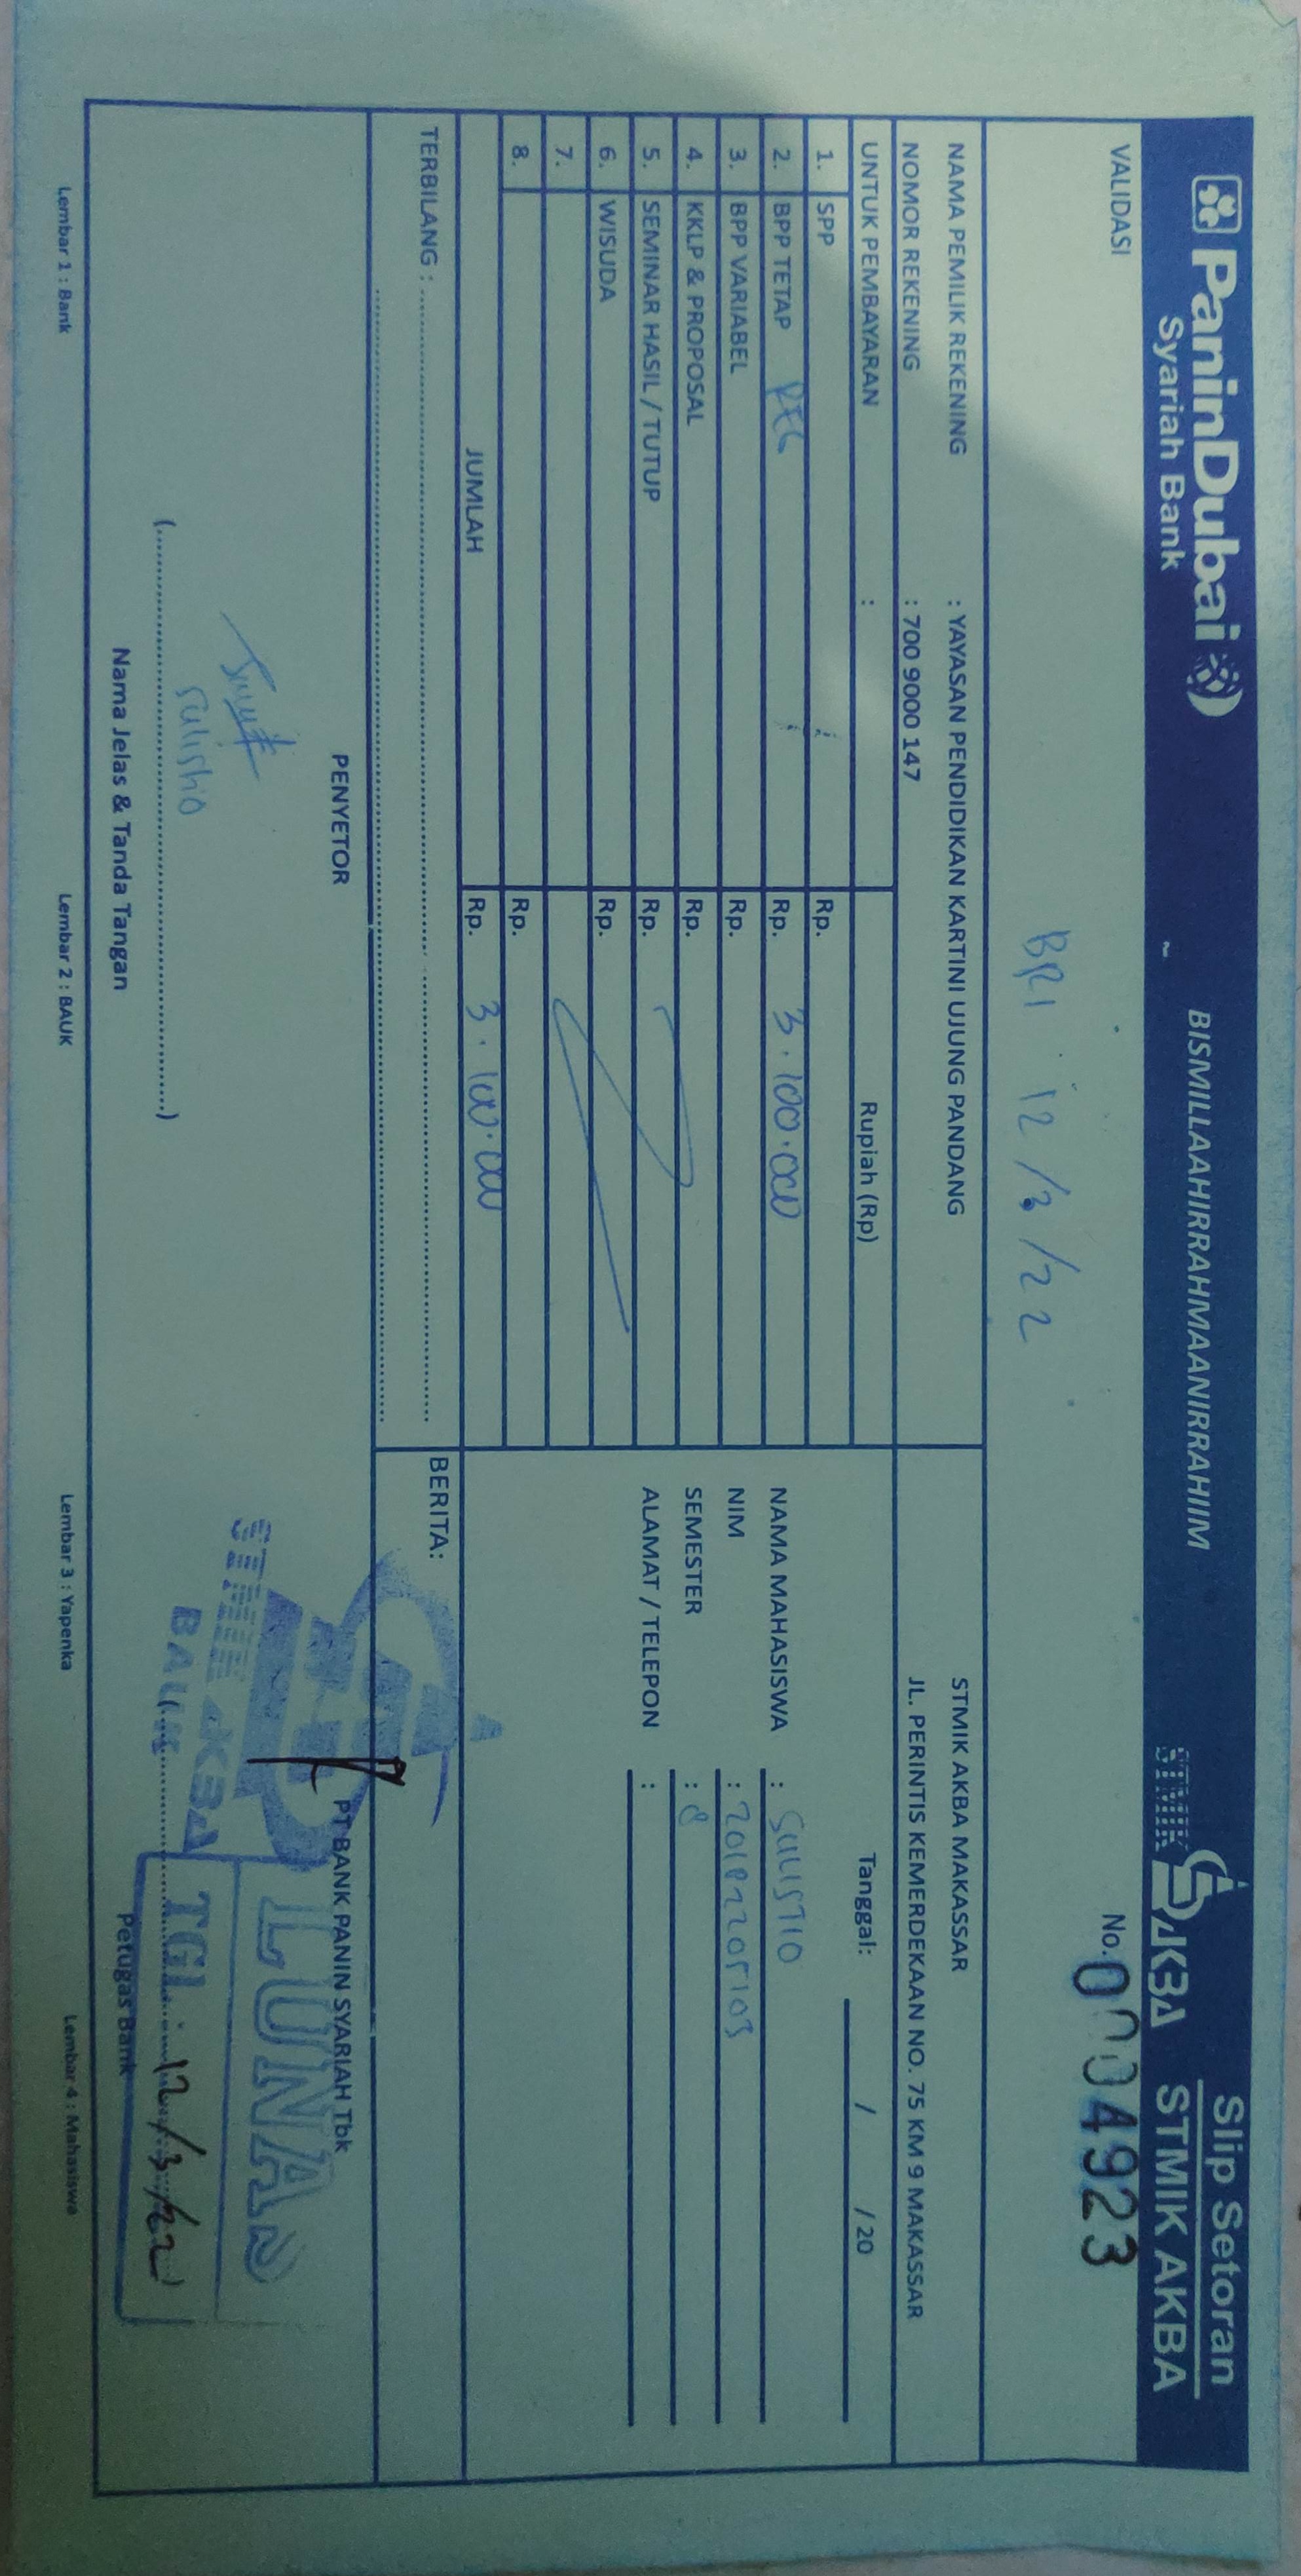 PaninDubai
Syariah Bank
BISMILLAAHIRRAHMAANIRRAHIIM
STMIK AKBA
Slip Setoran
STMIK AKBA
VALIDASI
No. 0004923
BRI 12/3/22
NAMA PEMILIK REKENING : YAYASAN PENDIDIKAN KARTINI UJUNG PANDANG
NOMOR REKENING : 700 9000 147
STMIK AKBA MAKASSAR
JL. PERINTIS KEMERDEKAAN NO. 75 KM 9 MAKASSAR
UNTUK PEMBAYARAN : Rupiah (Rp)
Tanggal: / / 20
1. SPP Rp.
2. BPP TETAP REG Rp. 3.100.000
3. BPP VARIABEL Rp.
4. KKLP & PROPOSAL Rp.
5. SEMINAR HASIL / TUTUP Rp.
6. WISUDA Rp.
7.
8. Rp.
JUMLAH Rp. 3.100.000
NAMA MAHASISWA : SULISTIO
NIM :
SEMESTER : 8
ALAMAT / TELEPON :
TERBILANG :
BERITA:
PENYETOR
Sulistio
(....................)
Nama Jelas & Tanda Tangan
PT BANK PANIN SYARIAH Tbk
STMIK AKBA
BAUK
LUNAS
TGL. 12/3/22
Petugas Bank
Lembar 1 : Bank
Lembar 2 : BAUK
Lembar 3 : Yapenka
Lembar 4 : Mahasiswa